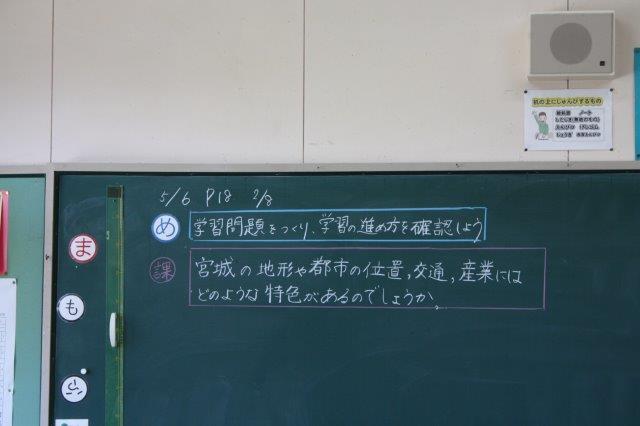 机の上にじゅんびするもの
教科書 ノート
5/6 P18 2/8
め 学習問題をつくり、学習の進め方を確認しよう
課 宮城の地形や都市の位置,交通,産業には
どのような特色があるのでしょうか。
ま
も